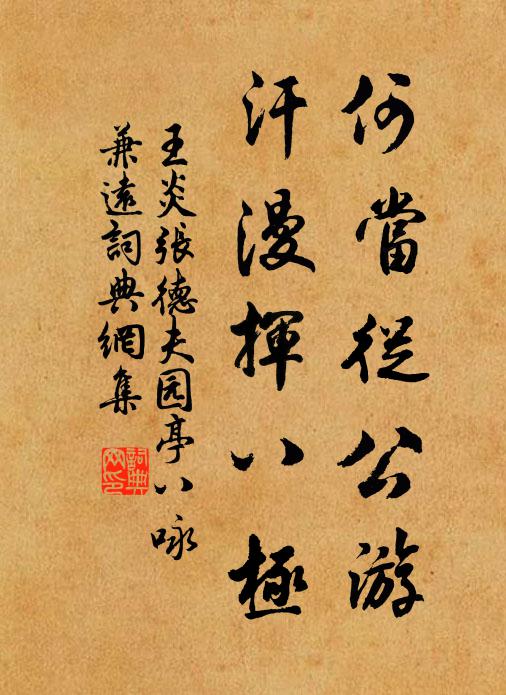 何當從公游
汗漫揮八極
王炎張德夫园亭八咏
兼遠詞典網集
詞典網印